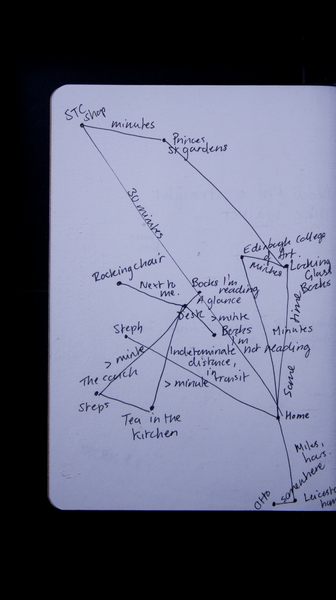 STC
shop
minutes
Princes
St gardens
30 minutes
Edinburgh College
of Art.
Minutes
Looking
Glass
Books
Rocking chair
Next to
me.
Books I'm
reading
A glance
Desk
> minute
Books
I'm
not reading
Steph
> minute
Indeterminate
distance,
in
transit
Minutes
Same time
The couch
Steps
> minute
Tea in the
kitchen
Home
Miles,
hours.
somewhere
Otto